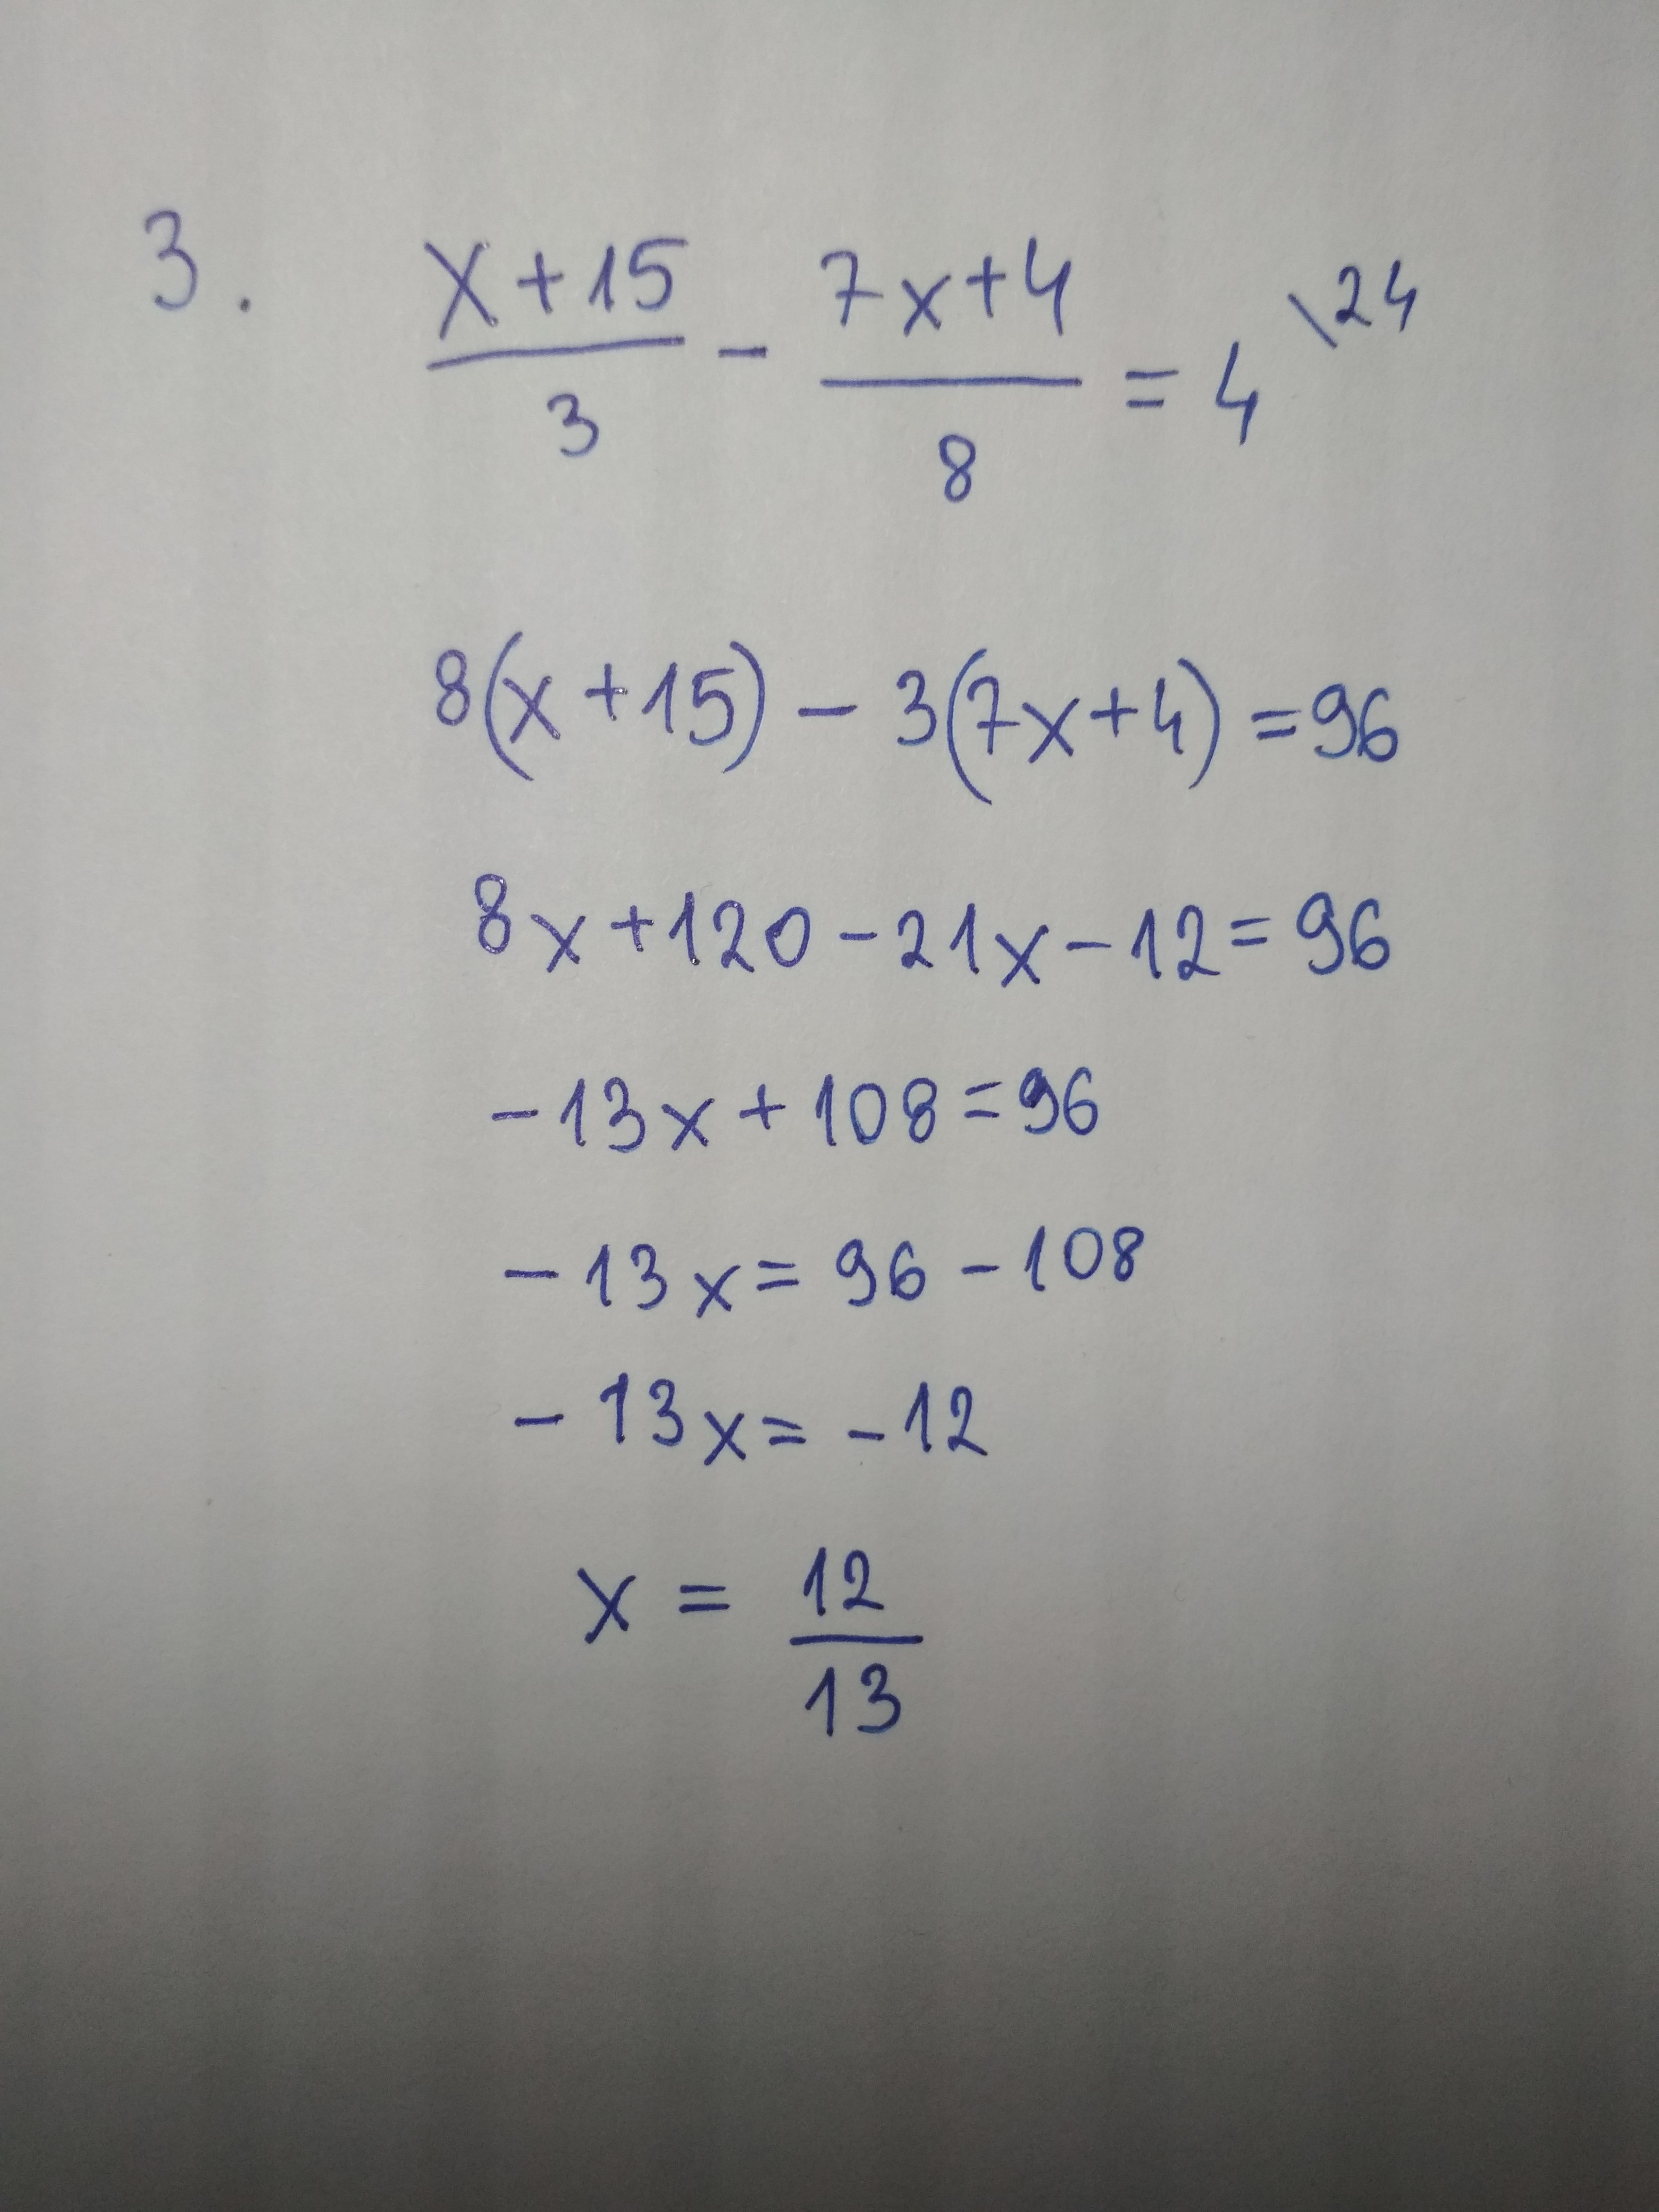 3. x+15/3 - 7x+4/8 = 4 \24
8(x+15) - 3(7x+4) = 96
8x+120-21x-12=96
-13x+108=96
-13x=96-108
-13x=-12
x = 12/13